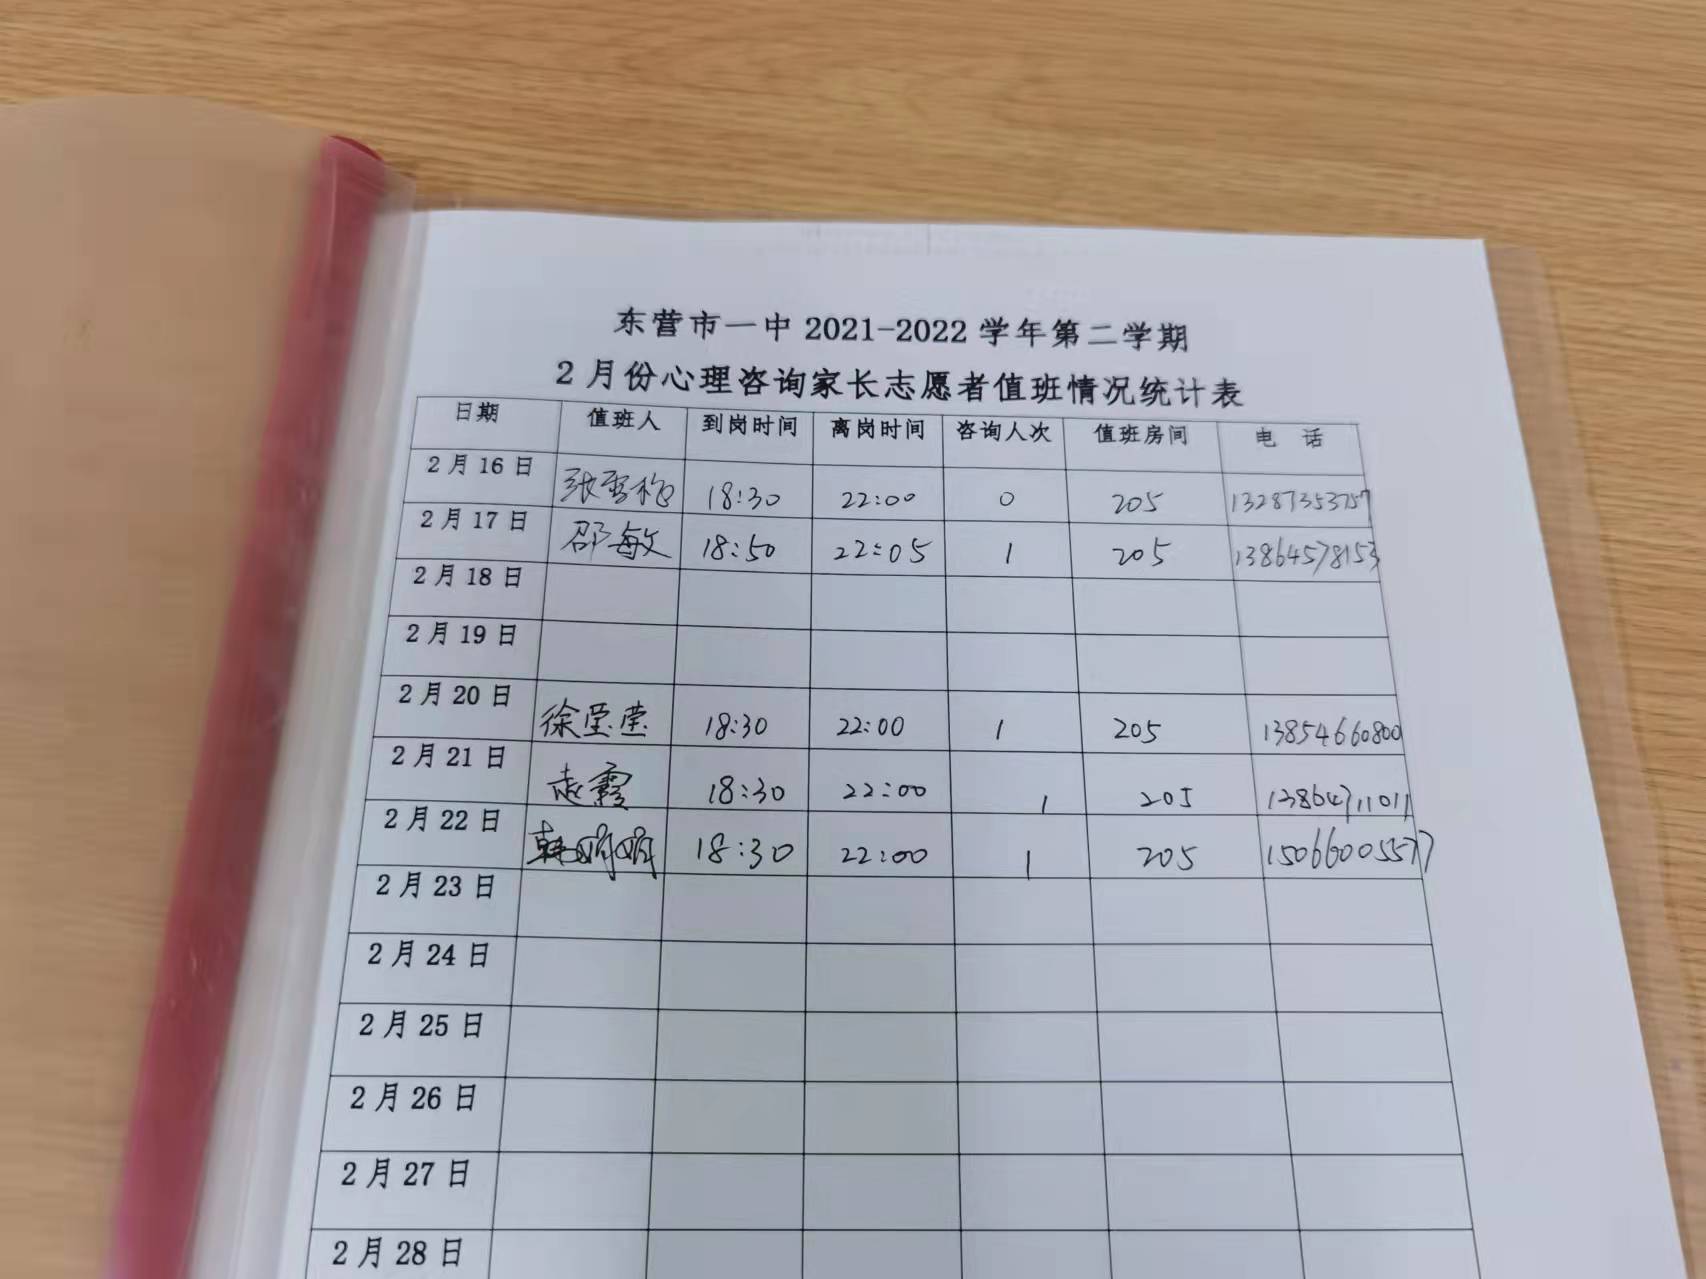 东营市一中 2021-2022 学年第二学期
2 月份心理咨询家长志愿者值班情况统计表
日期 值班人 到岗时间 离岗时间 咨询人次 值班房间 电 话
2 月 16 日 张雪梅 18:30 22:00 0 205 13287353757
2 月 17 日 邵敏 18:50 22:05 1 205 13864578153
2 月 18 日
2 月 19 日
2 月 20 日 徐莹莹 18:30 22:00 1 205 13854660800
2 月 21 日 赵霞 18:30 22:00 1 205 13864711011
2 月 22 日 韩娟娟 18:30 22:00 1 205 15066005577
2 月 23 日
2 月 24 日
2 月 25 日
2 月 26 日
2 月 27 日
2 月 28 日